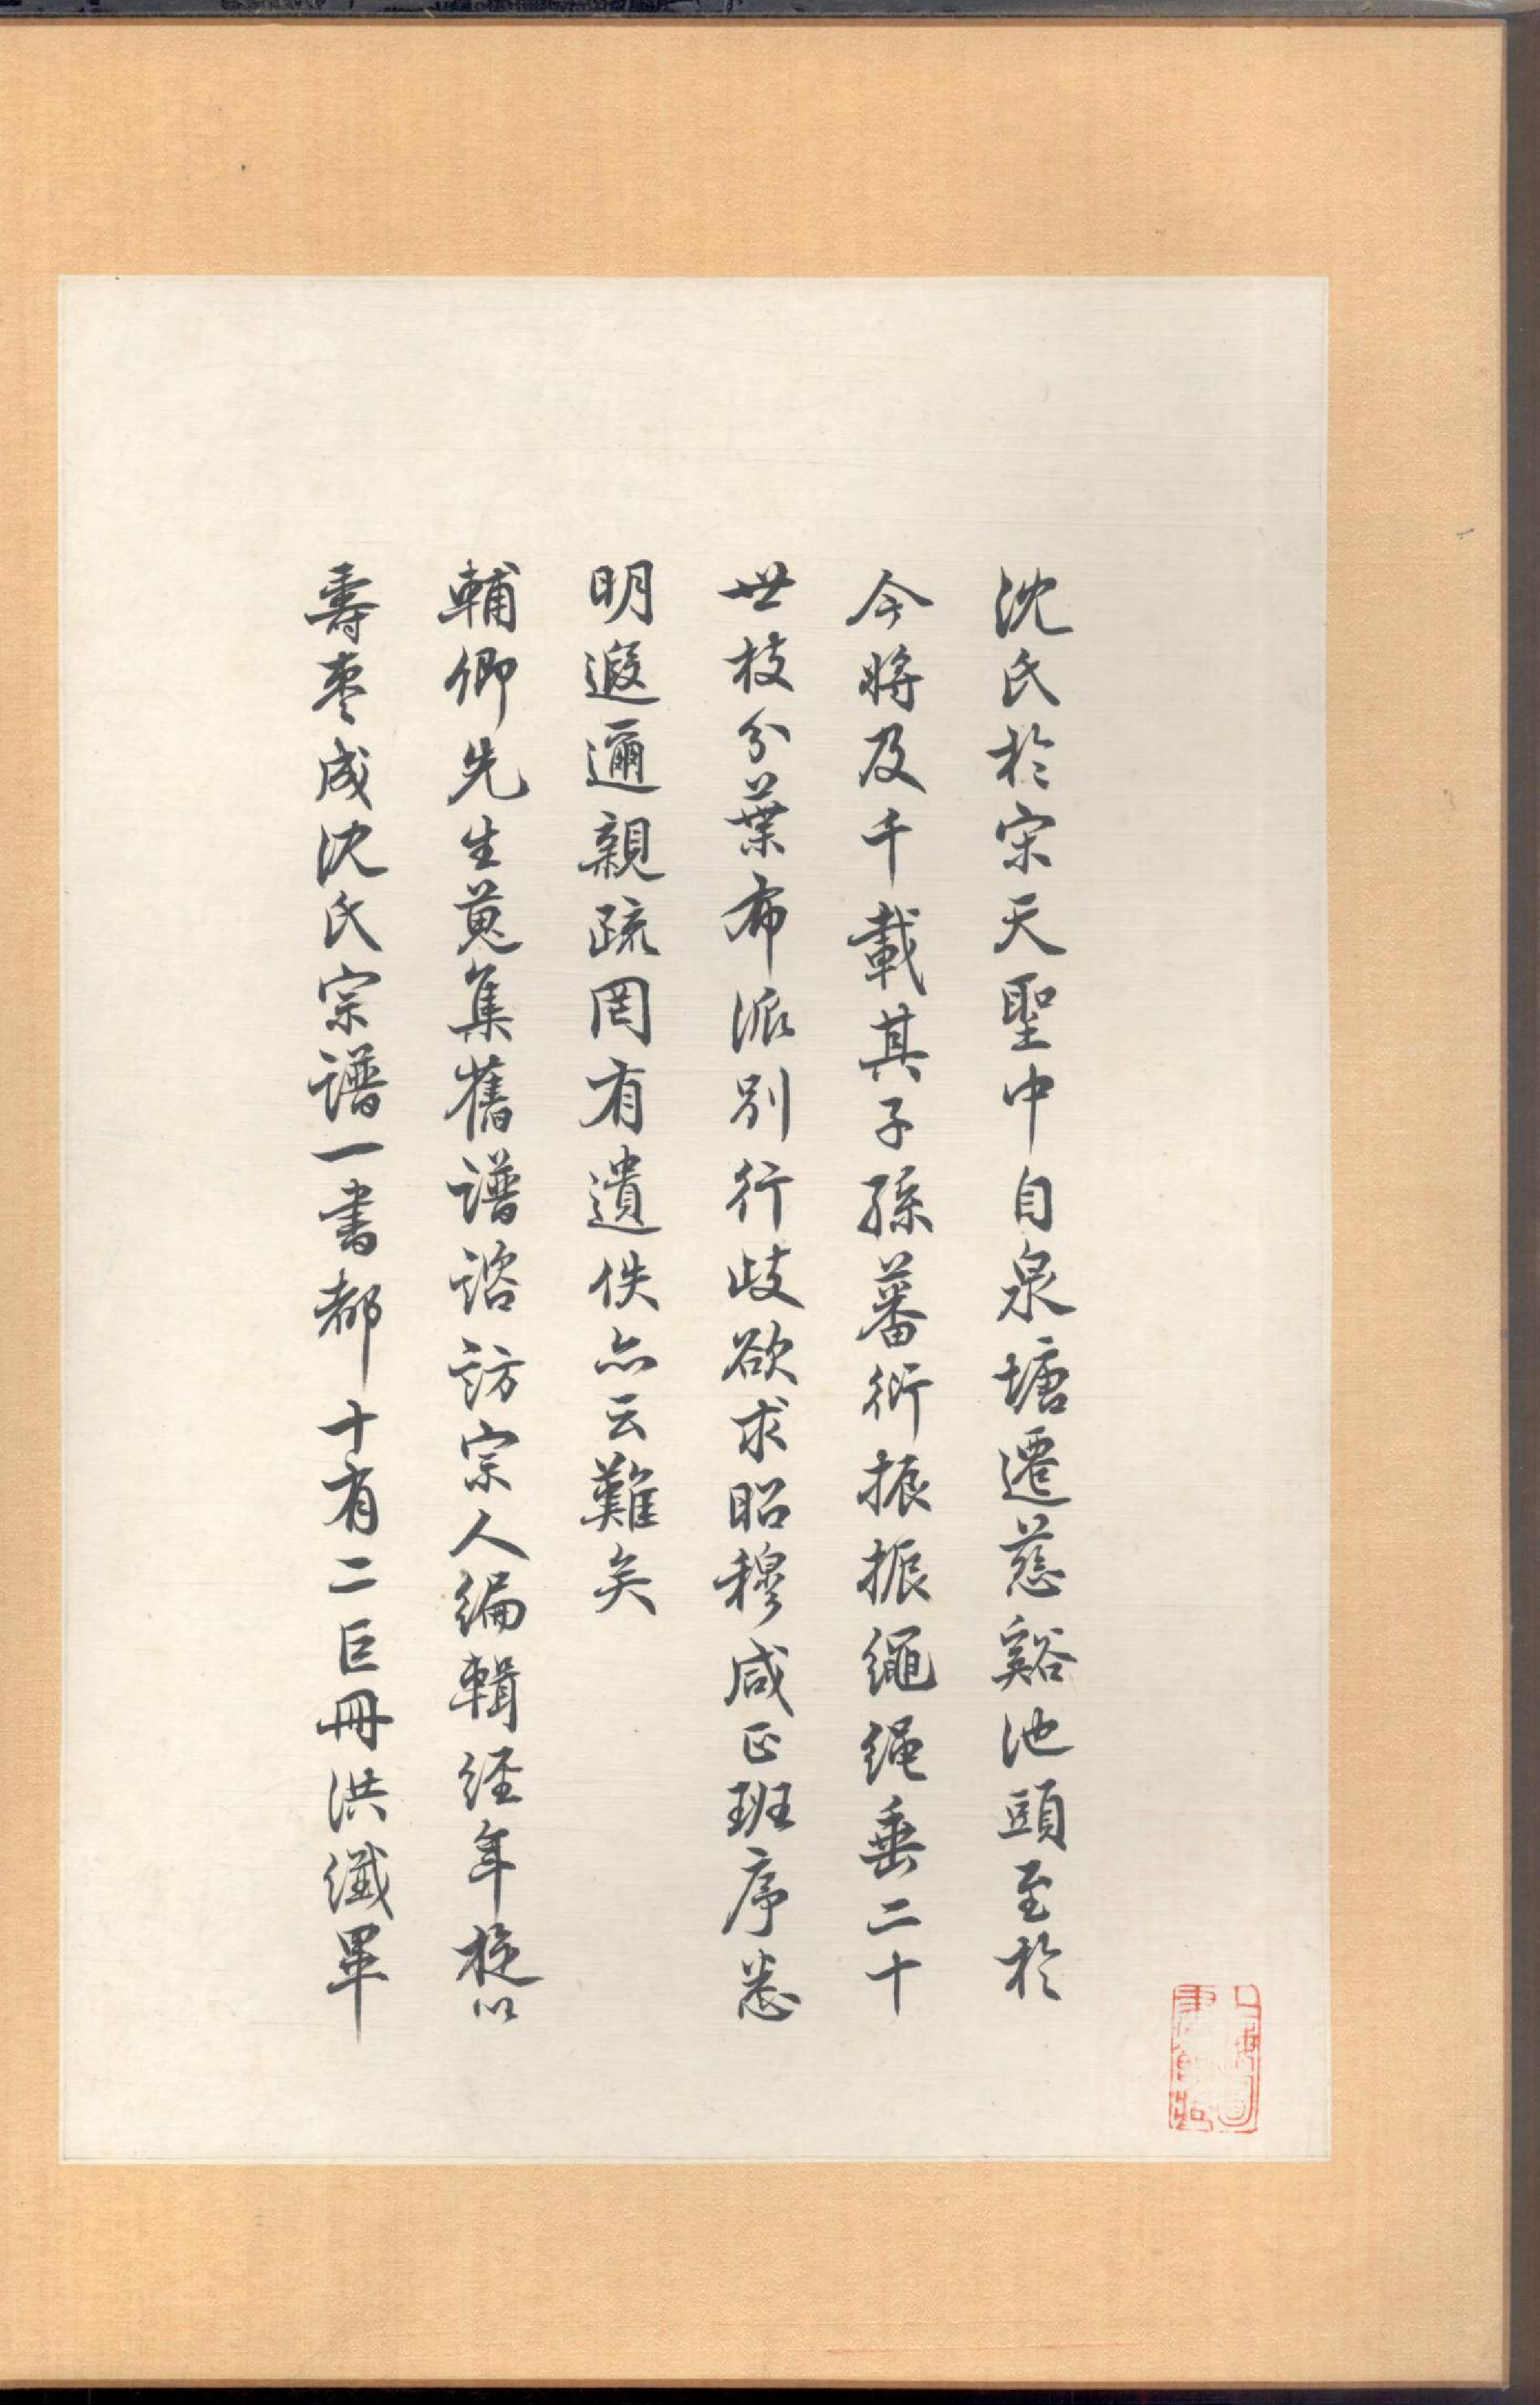 沈氏於宋天聖中自泉塘遷慈谿池頭至於
今將及千載其子孫蕃衍振振繩繩垂二十
世枝分葉布派別行歧欲求昭穆咸正班序悉
明遐邇親疏罔有遺佚亦云難矣
輔卿先生蒐集舊譜諮訪宗人編輯經年旋以
壽枣成沈氏宗譜一書都十有二巨冊洪纖畢